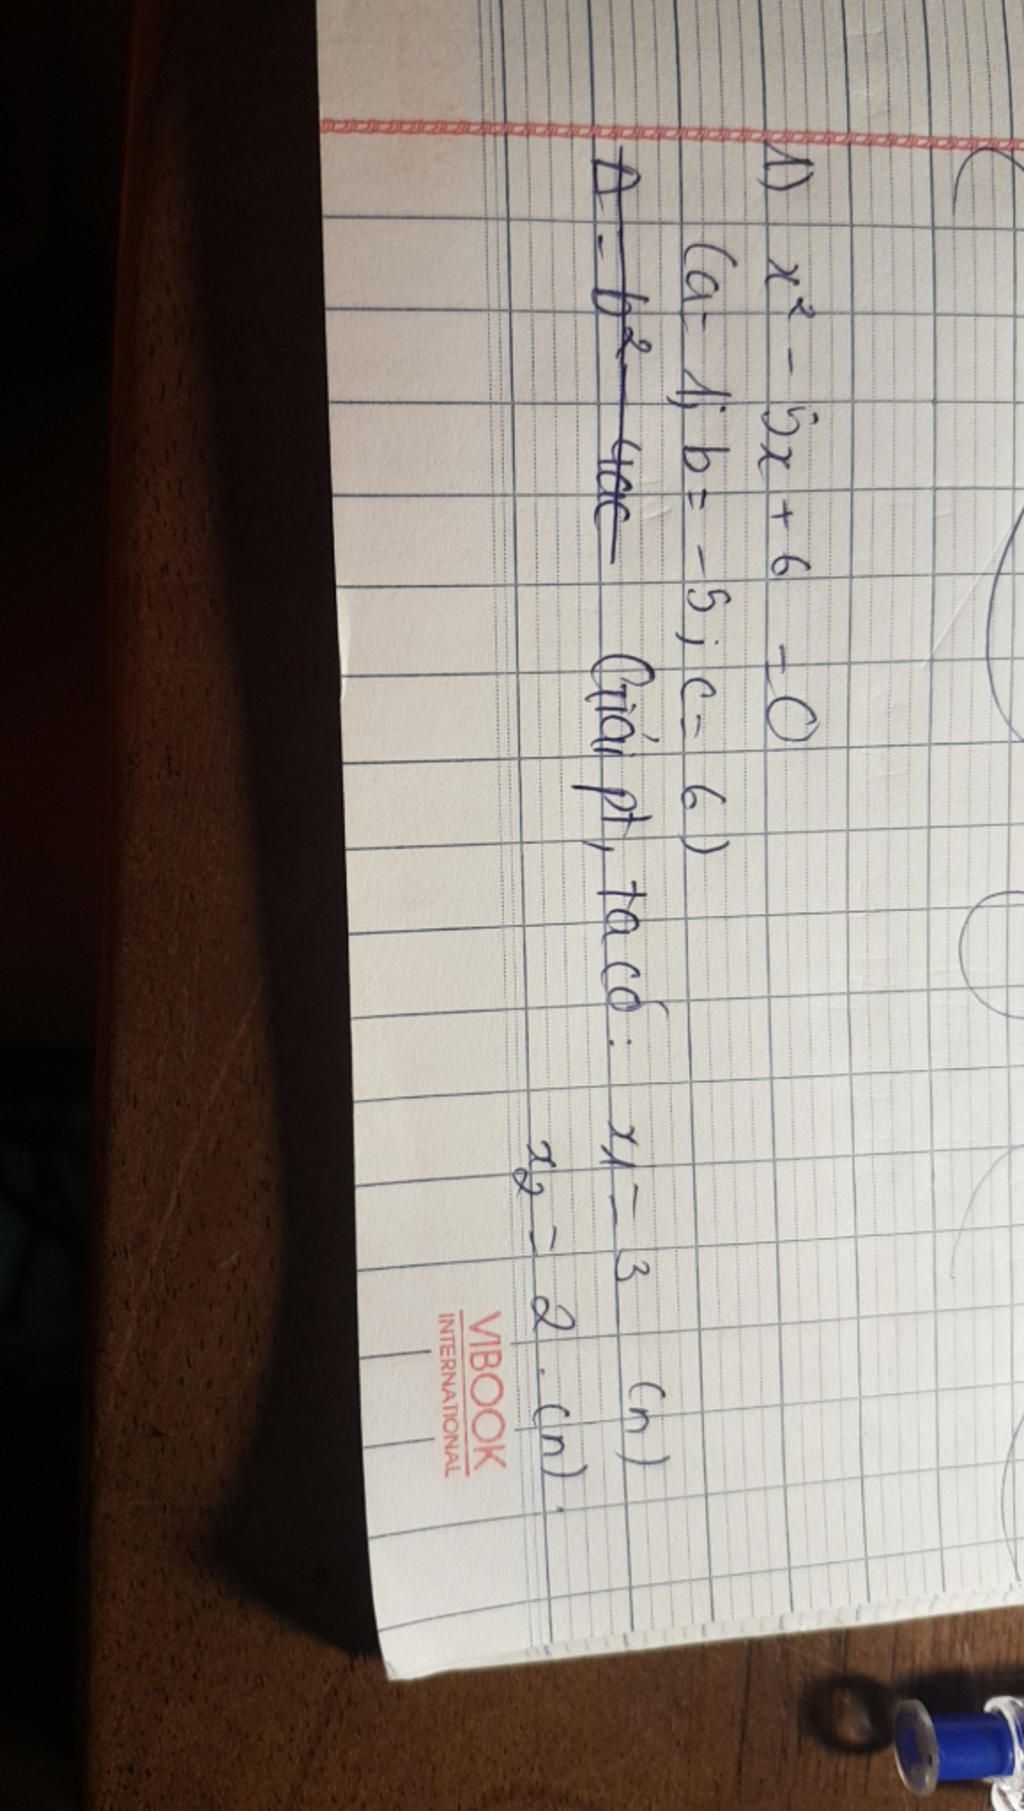 1) x² - 5x + 6 = 0
(a = 1; b = -5; c = 6)
Δ = b² - 4ac Giải pt, ta có: x1 = 3 (n)
x2 = 2. (n).
VIBOOK
INTERNATIONAL